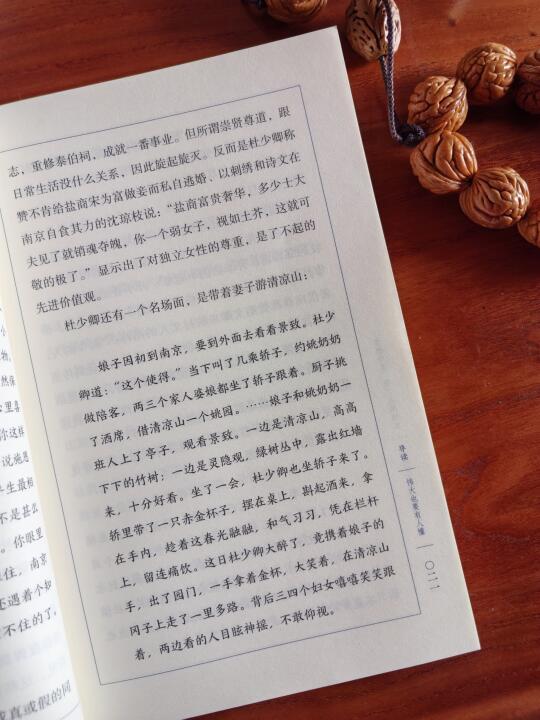 志，重修泰伯祠，成就一番事业。但所谓崇贤尊道，跟
日常生活没什么关系，因此旋起旋灭。反而是杜少卿称
赞不肯给盐商宋为富做妾而私自逃婚、以刺绣和诗文在
南京自食其力的沈琼枝说：“盐商富贵奢华，多少士大
夫见了就销魂夺魄，你一个弱女子，视如土芥，这就可
敬的极了。”显示出了对独立女性的尊重，是了不起的
先进价值观。
杜少卿还有一个名场面，是带着妻子游清凉山：
娘子因初到南京，要到外面去看看景致。杜少
卿道：“这个使得。”当下叫了几乘轿子，约姚奶奶
做陪客，两三个家人婆娘都坐了轿子跟着。厨子挑
了酒席，借清凉山一个姚园。……娘子和姚奶奶一
班人上了亭子，观看景致。一边是清凉山，高高
下下的竹树；一边是灵隐观，绿树丛中，露出红墙
来，十分好看。坐了一会，杜少卿也坐轿子来了。
轿里带了一只赤金杯子，摆在桌上，斟起酒来，拿
在手内，趁着这春光融融，和气习习，凭在栏杆
上，留连痛饮。这日杜少卿大醉了，竟携着娘子的
手，出了园门，一手拿着金杯，大笑着，在清凉山
冈子上走了一里多路。背后三四个妇女嘻嘻笑笑跟
着，两边看的人目眩神摇，不敢仰视。
导读
伟大也要有人懂
〇二一
小
物，
然保
公里喜
你这样
说施恩
生最相
不是甚么
。你眼里
住，南京
还遇着个如
不住的了，
真或假的同